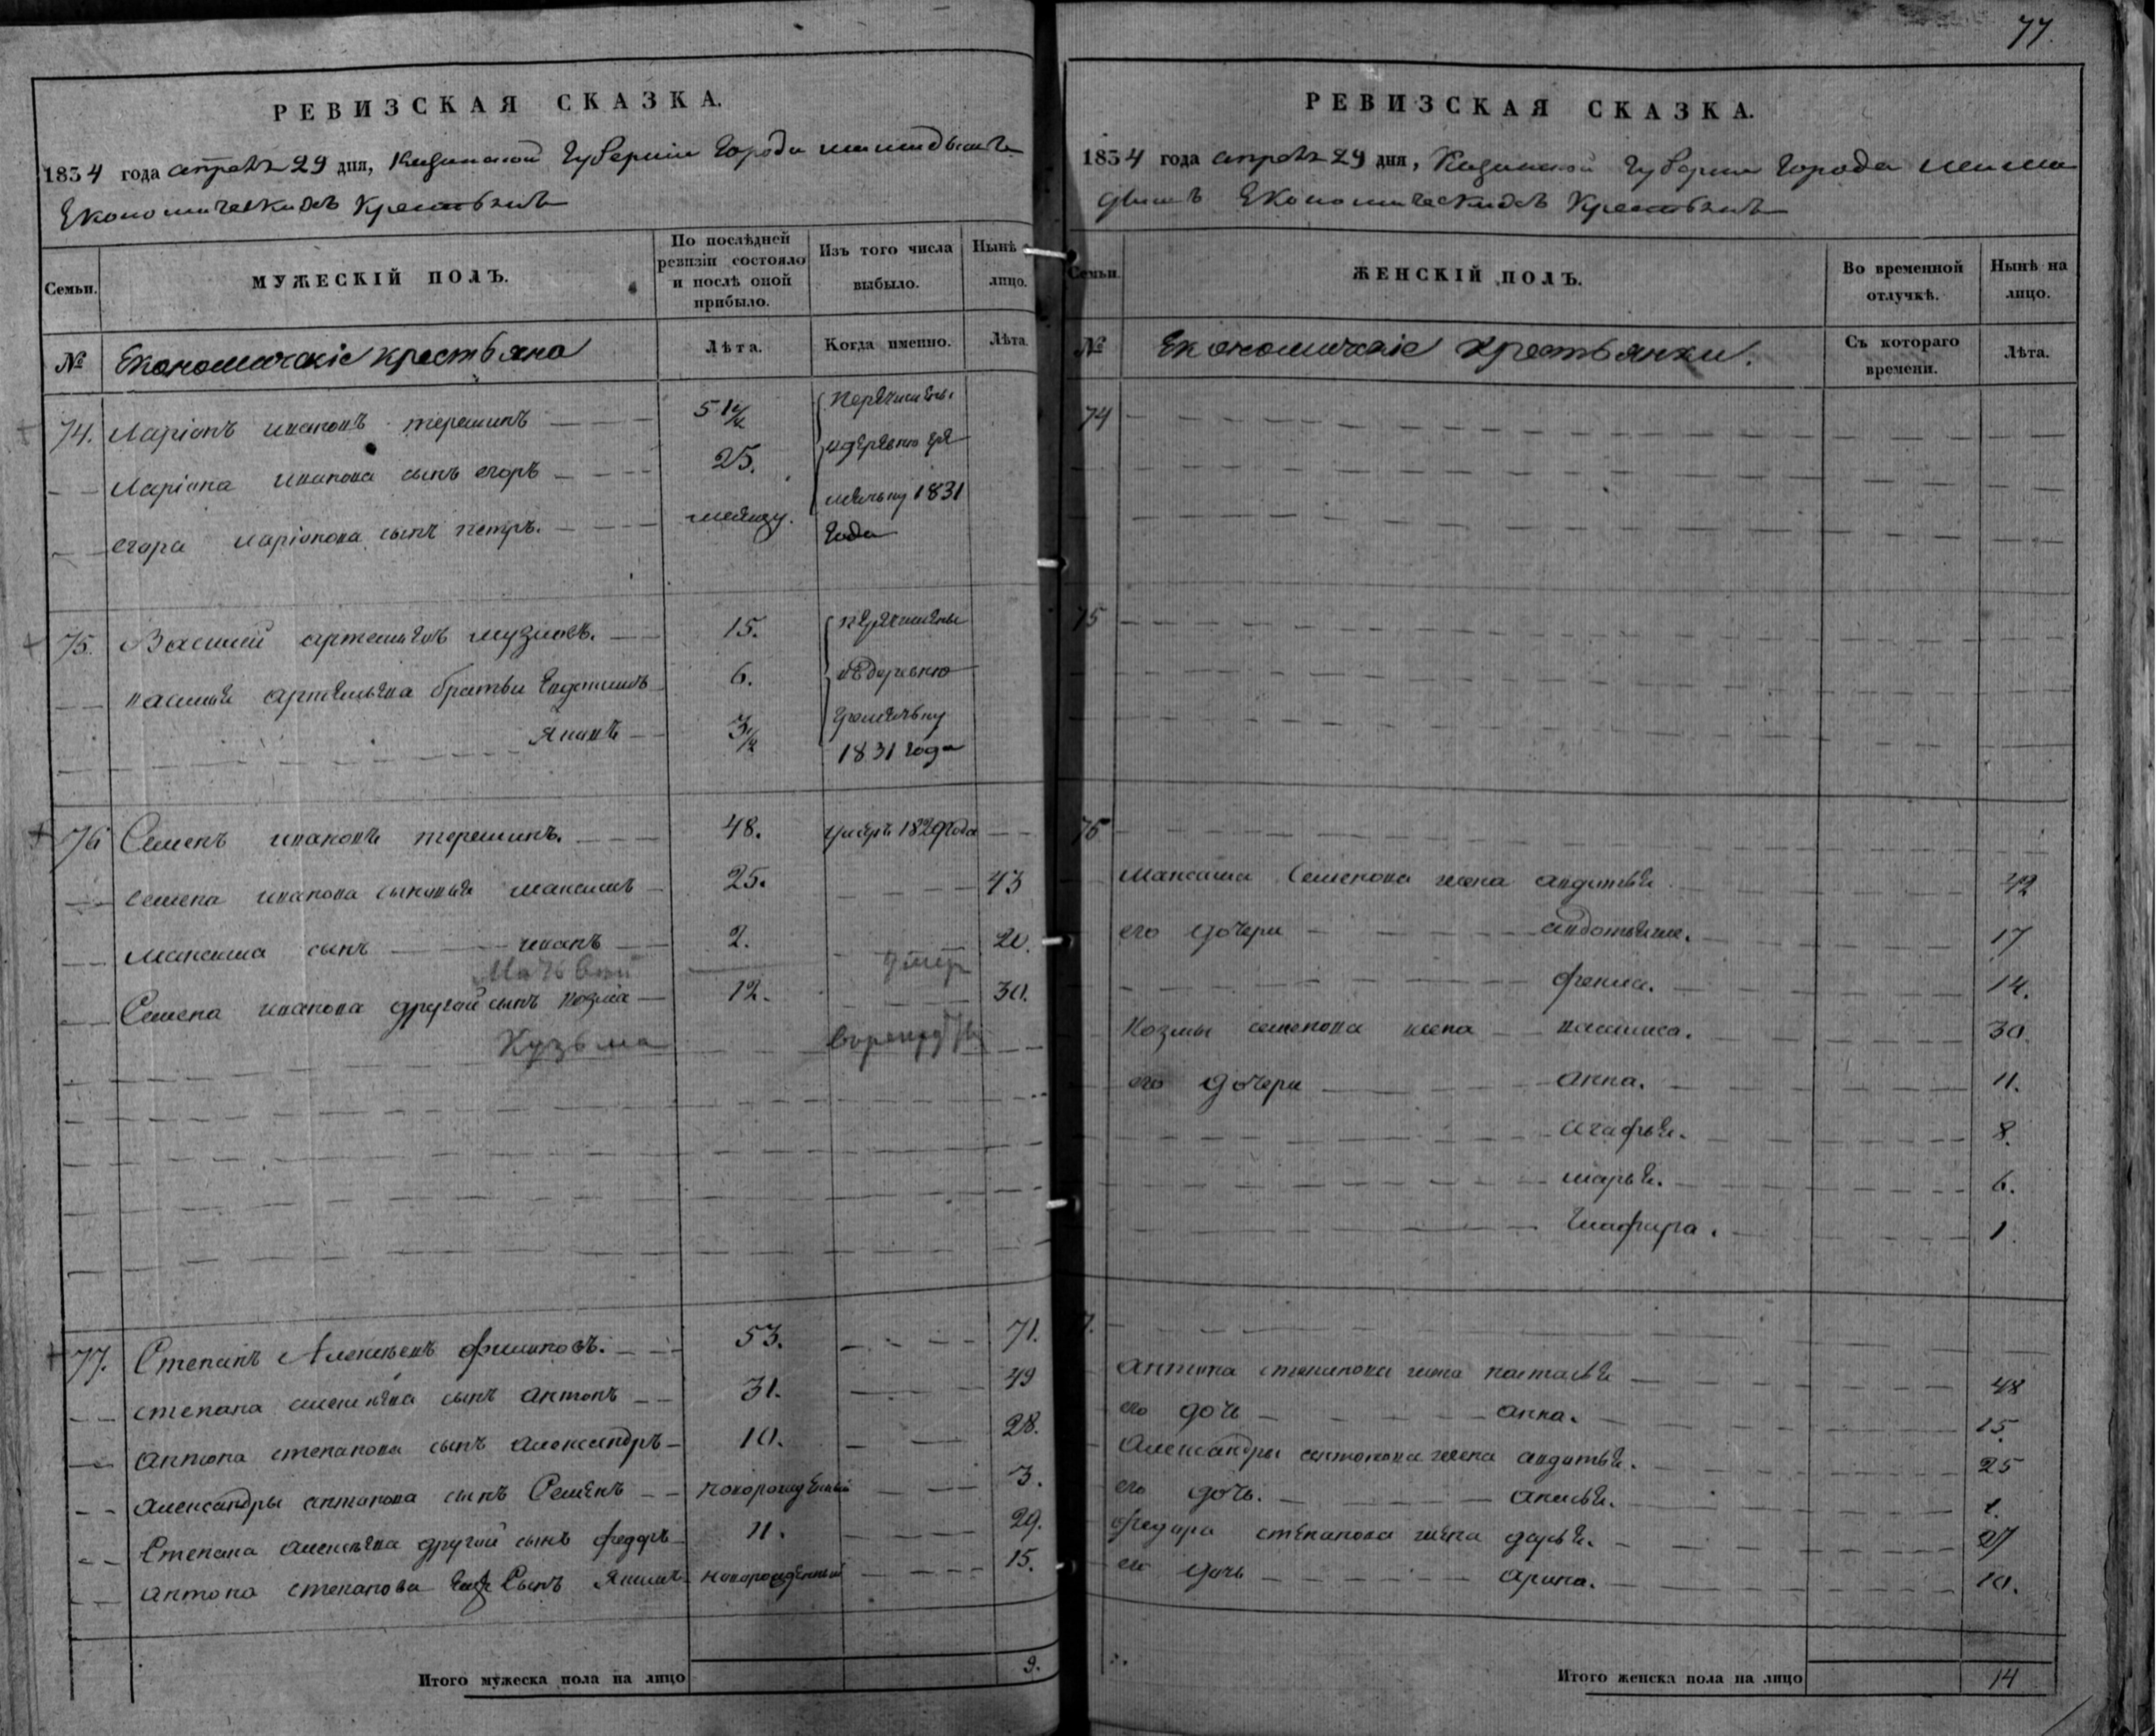 77.
РЕВИЗСКАЯ СКАЗКА.
1834 года апреля 29 дня, Казанской Губернии Города
Економическихъ Крестьянъ
Семьи.
МУЖЕСКІЙ ПОЛЪ.
По послѣдней ревизіи состояло и послѣ оной прибыло.
Изъ того числа выбыло.
Нынѣ лицо.
№
Економическіе крестьяна
Лѣта.
Когда именно.
Лѣта.
74. Ларіонъ ивановъ терешинъ 51 1/2 перечислены
Ларіона иванова сынъ егоръ 25. в деревню гре
егора ларіонова сынъ петръ. 1831
года
75. Василій артемьевъ 15. перечислены
василья артемьева братьи Евдокимъ 6. въ деревню
Яковъ 3 1/2
1831 года
76 Семенъ ивановъ терешинъ. 48. умеръ 1829 года
семена иванова сыновья максимъ 25. 43
максима сынъ иванъ 2. 20.
умер
Семена иванова другой сынъ козма 12. 30.
Кузьма
77. Степанъ Алексѣевъ филиповъ. 53. 71.
степана алексѣева сынъ антонъ 31. 49
антона степанова сынъ александръ 10. 28.
александры антонова сынъ Семенъ новорожденный 3.
Степана алексѣева другой сынъ федоръ 11. 29.
антона степанова Сынъ Якимъ новорожденный 15.
Итого мужеска пола на лицо 9.
РЕВИЗСКАЯ СКАЗКА.
1834 года апреля 29 дня, Казанской Губернии Города
Економическихъ Крестьянъ
Семьи.
ЖЕНСКІЙ ПОЛЪ.
Во временной отлучкѣ.
Нынѣ на лицо.
№
Економическіе крестьянки.
Съ котораго времени.
Лѣта.
74
75
76
Максима Семенова жена авдотья 42
его дочери авдотья 17
фекла. 14.
Козмы семенова жена василиса. 30.
его дочери анна. 11.
агафья. 8.
марья. 6.
Глафира. 1.
антона степанова жена настасья 48
его дочь анна. 15.
Александры антонова жена авдотья. 25
его дочь. 1.
федора степанова жена дарья. 27
его дочь арина. 10.
Итого женска пола на лицо 14